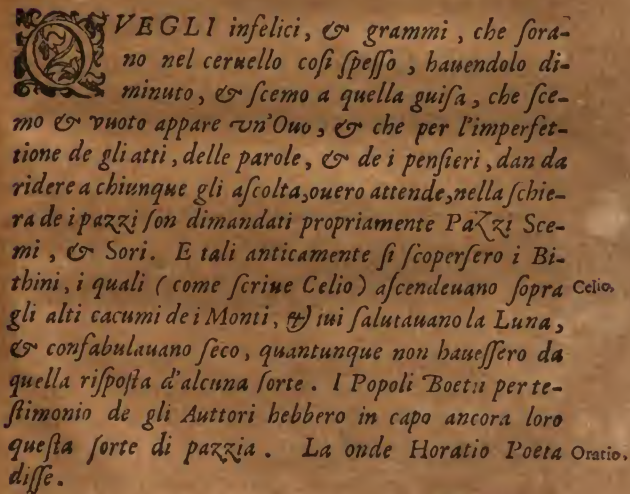 QVEGLI infelici, & grammi, che ſora-
no nel ceruello coſi ſpeſſo, hauendolo di-
minuto, & ſcemo a quella guiſa, che ſce-
mo & vuoto appare vn'Ouo, & che per l'imperfet-
tione de gli atti, delle parole, & de i penſieri, dan da
ridere a chiunque gli aſcolta, ouero attende, nella ſchie-
ra de i pazzi ſon dimandati propriamente Pazzi Sce-
mi, & Sori. E tali anticamente ſi ſcoperſero i Bi-
thini, i quali (come ſcriue Celio) aſcendeuano ſopra Celio,
gli alti cacumi de i Monti, & iui ſalutauano la Luna,
& confabulauano ſeco, quantunque non haueſſero da
quella riſpoſta d'alcuna ſorte. I Popoli Boetii per te-
ſtimonio de gli Auttori hebbero in capo ancora loro
queſta ſorte di pazzia. La onde Horatio Poeta Oratio,
diſſe.